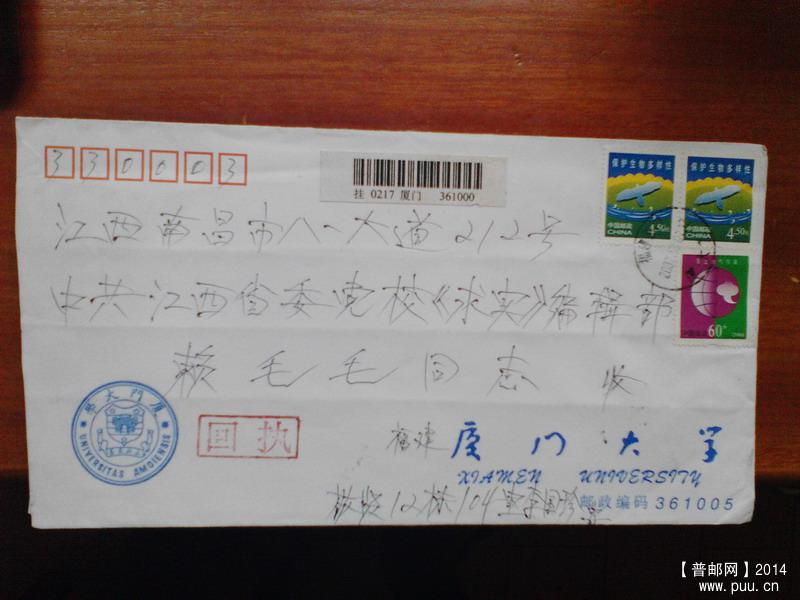 330003
挂 0217 厦门 361000
保护生物多样性
中国邮政 CHINA 4.50元
保护生物多样性
中国邮政 CHINA 4.50元
60分
江西南昌市八一大道212号
中共江西省委党校《求实》编辑部
赖毛毛同志 收
學大門厦
UNIVERSITAS AMOIENSIS
回执
福建 厦门大学
XIAMEN UNIVERSITY
邮政编码 361005
12栋104
【普邮网】2014
www.puu.cn